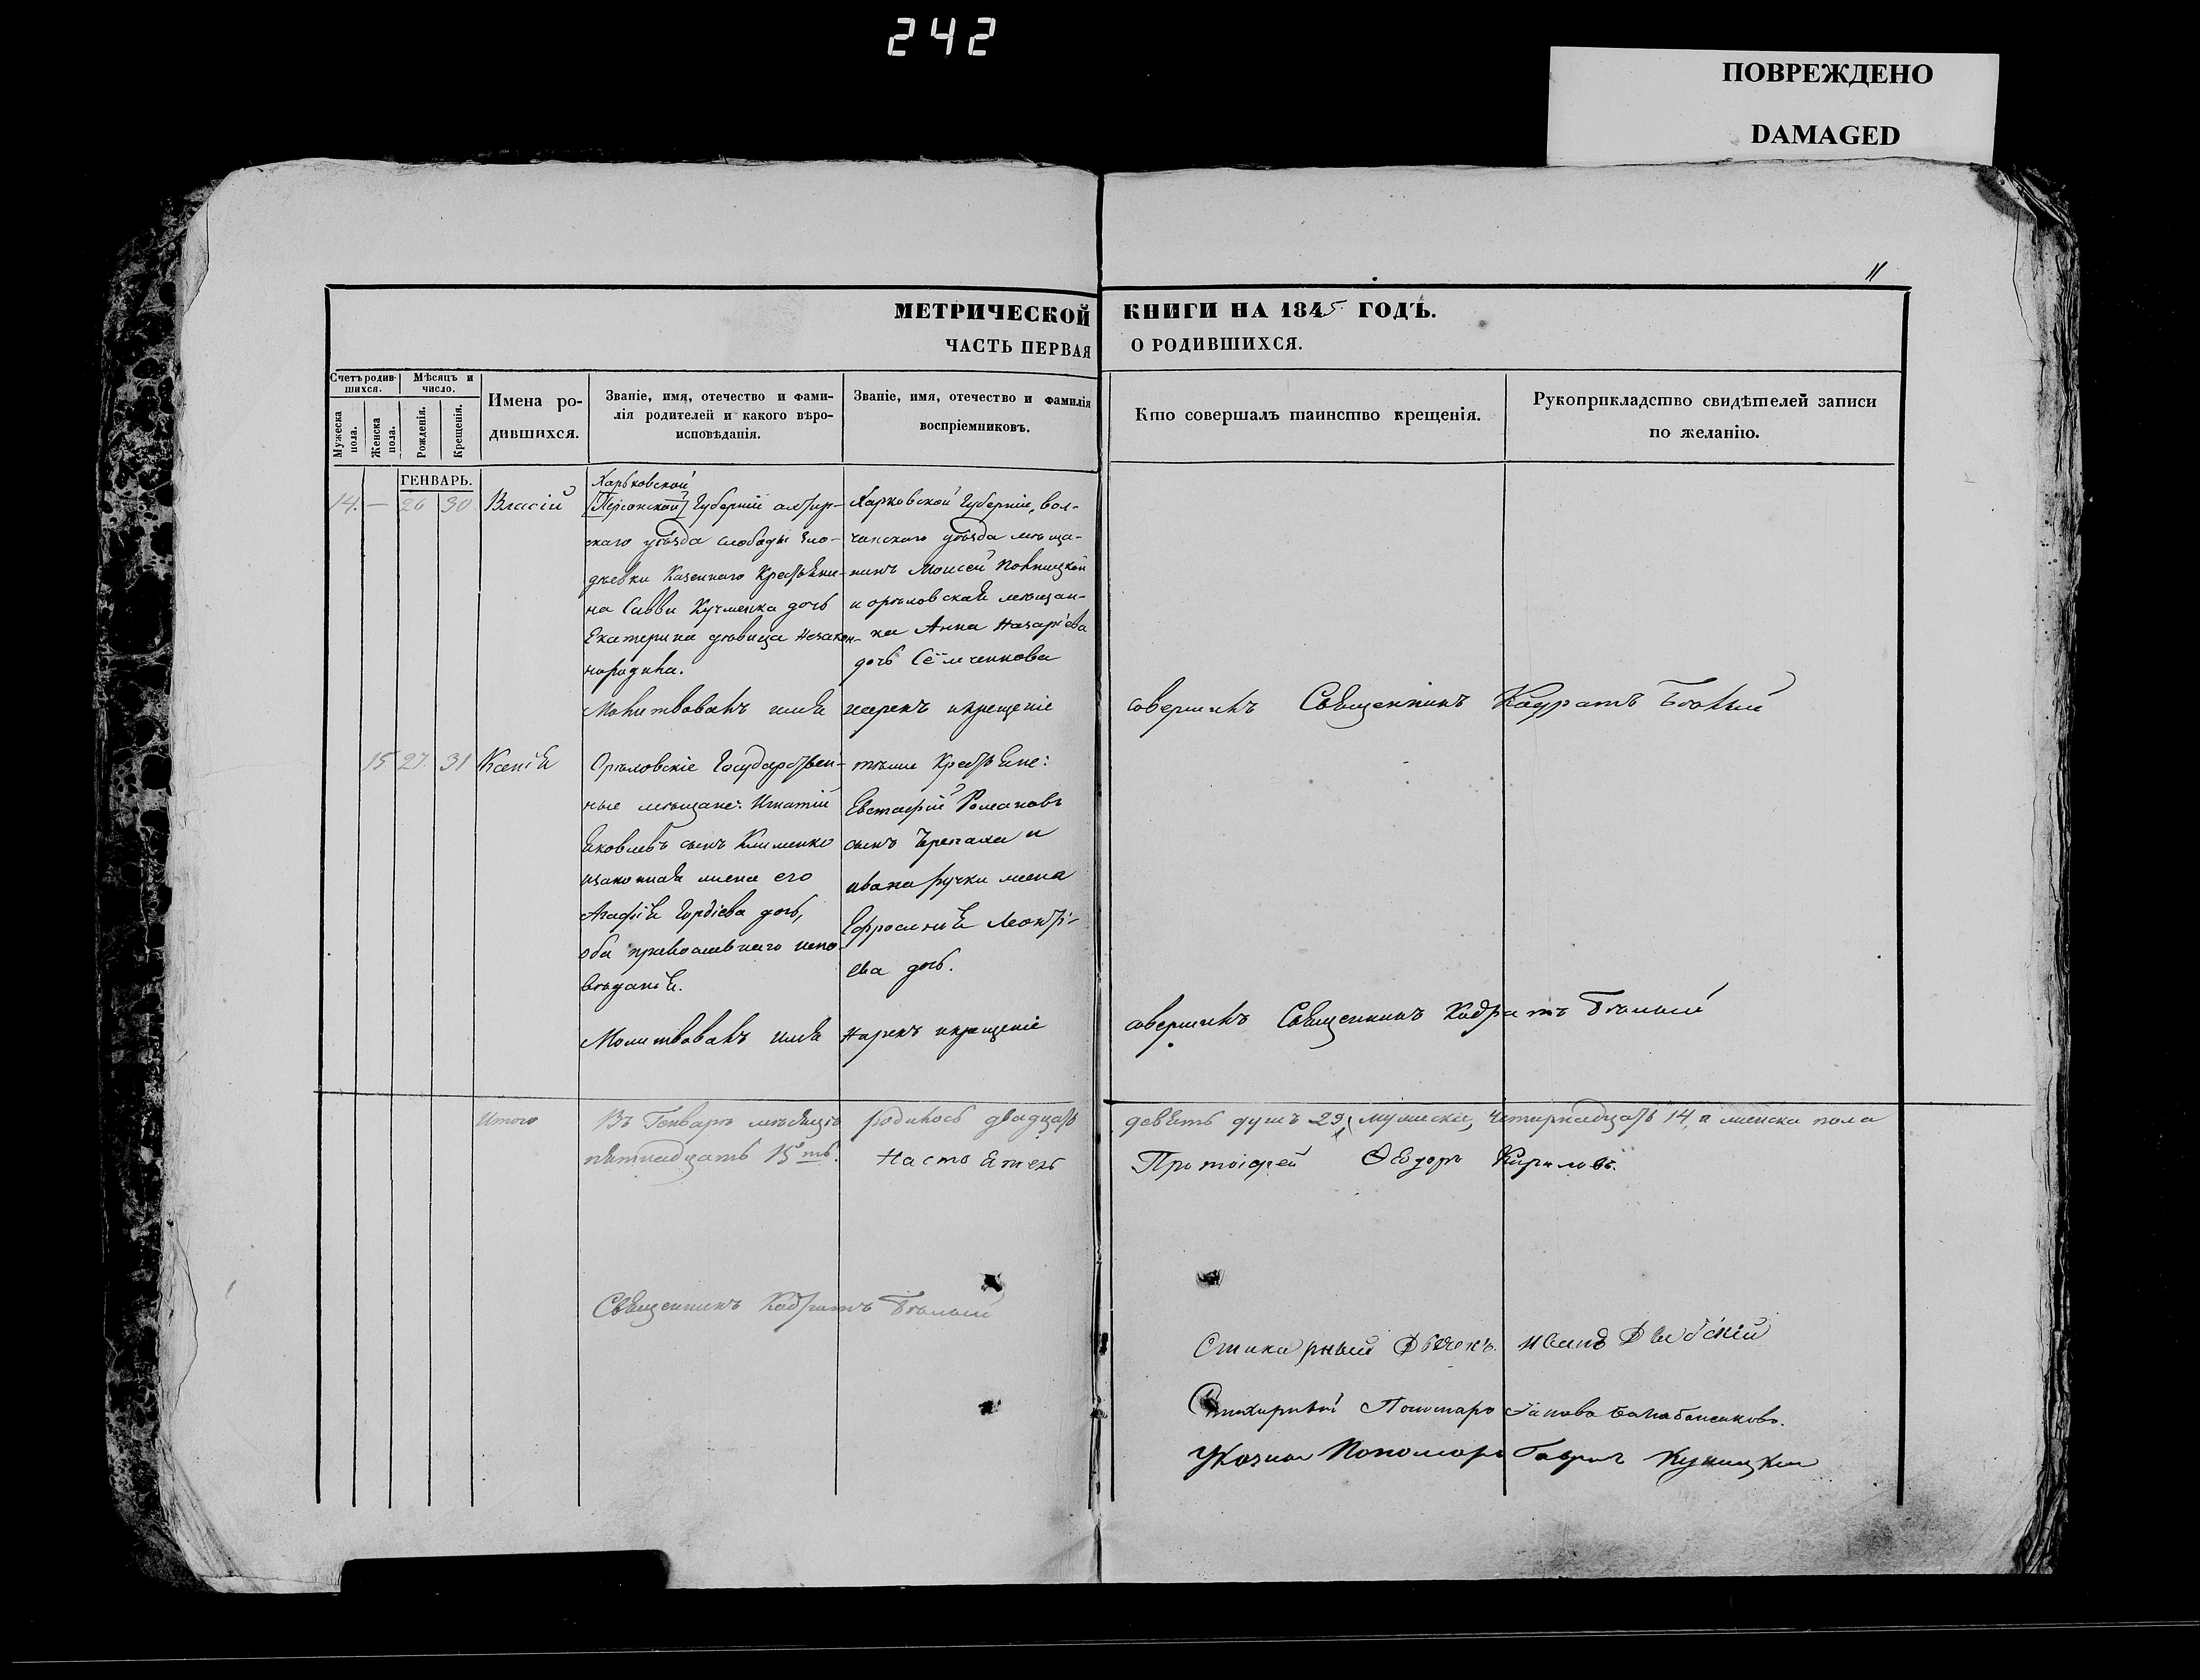 242
ПОВРЕЖДЕНО
DAMAGED
11
МЕТРИЧЕСКОЙ КНИГИ НА 1845 ГОДЪ.
ЧАСТЬ ПЕРВАЯ О РОДИВШИХСЯ.
Счетъ родив-
шихся.
Мѣсяцъ и
число.
Мужеска
пола.
Женска
пола.
Рожденія.
Крещенія.
Имена ро-
дившихся.
Званіе, имя, отечество и фами-
лія родителей и какого вѣро-
исповѣданія.
Званіе, имя, отечество и фамилія
воспріемниковъ.
Кто совершалъ таинство крещенія.
Рукоприкладство свидѣтелей записи
по желанію.
ГЕНВАРЬ.
14. — 26 30 Власій
Харьковской
[Херсонской] Губерніи
скаго уѣзда слободы
Казеннаго Крестьяни-
на Саввы Кучменка дочь
Екатерина дѣвица незакон-
нородила.
Харковской Губерніи, вол-
чанскаго уѣзда мѣща-
нинъ Моисей
и орѣловская мѣщан-
ка Анна Назаріева
дочь Семченкова
Молитвовалъ имя нарекъ икрещеніе совершилъ Священникъ Кадратъ Бѣлый
15 27. 31 Ксенія
Орѣловскіе Государствен-
ные мѣщане: Игнатій
Яковлевъ сынъ Клименко
изаконная жена его
Агафія Гордіева дочь,
оба православнаго испо-
вѣданія.
тѣжые Крестьяне:
Евстафій Романовъ
сынъ Черепаха и
ивана ручки жена
Ефросинія Леонті-
ева дочь.
Молитвовалъ имя нарекъ икрещеніе совершилъ Священникъ Кадратъ Бѣлый
Итого Въ Генварѣ мѣсяцѣ родилось двадцать девять душъ 29, мужеска, четырнадцать 14, а женска пола
пятнадцать 15ть. Настоятель Протоіерей Ѳеодоръ Кириловъ.
Священникъ Кадратъ Бѣлый
Стихарный Дьячекъ Иванъ
Стихарный Пономарь
Указной Пономарь Гаврилъ Куницкій